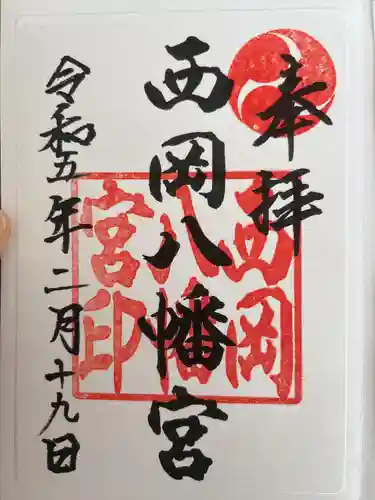 奉拝
西岡八幡宮
令和五年二月十九日
西岡
八幡
宮印